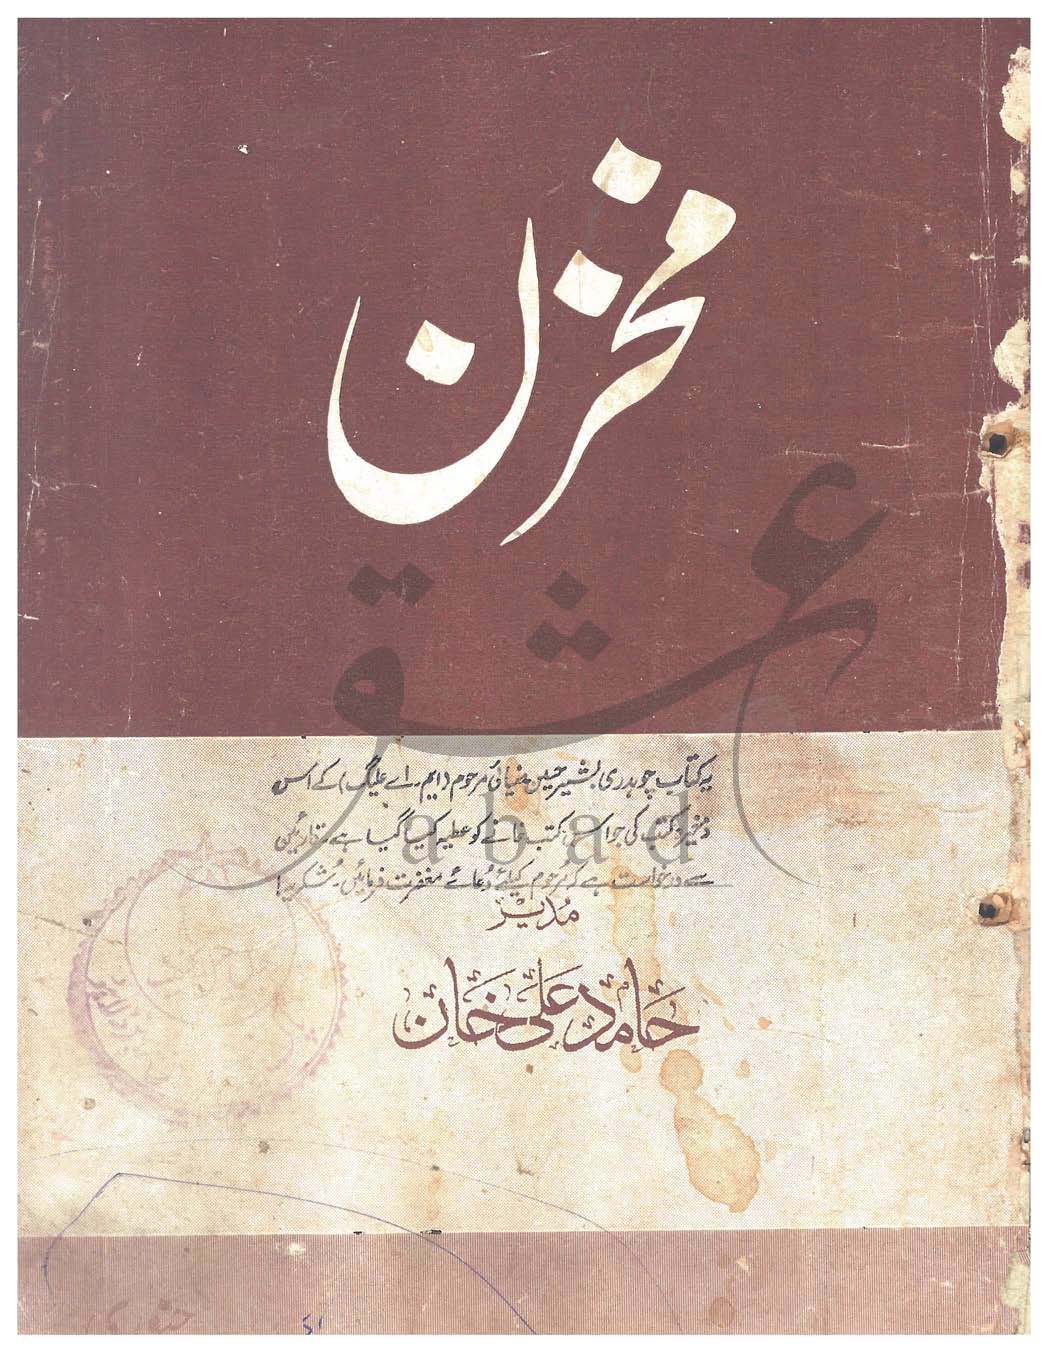 مخزن
عشق
abad
یہ کتاب چوہدری بشیر حسین ضیائی مرحوم (ایم۔اے علیگ) کے اس
ذخیرہ کتب کی جو اس کتب خانے کو عطیہ کیا گیا ہے قارئین
سے درخواست ہے کہ مرحوم کیلئے دُعائے مغفرت فرمائیں۔ شکریہ!
مُدیر
حامد علی خان